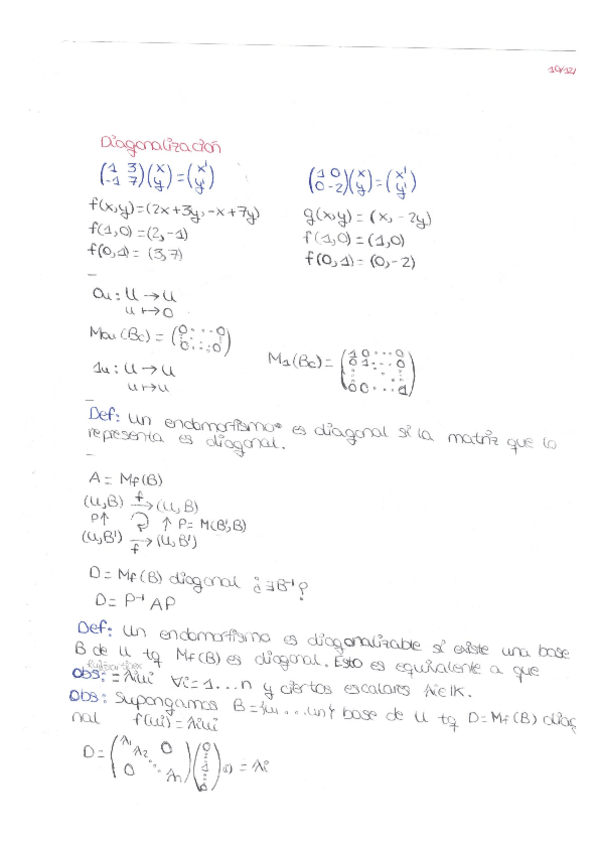 10/12/
Diagonalización
(1 3 / -1 7)(x / y)=(x' / y')
(1 0 / 0 -2)(x / y)=(x' / y')
f(x,y)=(2x+3y,-x+7y)
g(x,y)=(x,-2y)
f(1,0)=(2,-1)
f(1,0)=(1,0)
f(0,1)=(3,7)
f(0,1)=(0,-2)
0u: U → U
u ↦ 0
M0u(Bc)=(0...0 / 0...0)
1u: U → U
u ↦ u
M1(Bc)=(1 0...0 / 0 1...0 / 0 0...1)
Def: Un endomorfismo* es diagonal si la matriz que lo
representa es diagonal.
A = Mf(B)
(U,B) f→ (U,B)
P↑ ↑ P= M(B',B)
(U,B') →f (U,B')
D = Mf(B) diagonal ¿∃B'?
D = P⁻¹AP
Def: Un endomorfismo es diagonalizable si existe una base
B de U tq Mf(B) es diagonal. Esto es equivalente a que
Obs: = λiui ∀i=1...n y ciertos escalares λi∈K.
Obs: Supongamos B={u1...un} base de U tq D=Mf(B) diag
nal f(ui)=λiui
D=(λ1 λ2 0 / 0 ... λn)(0 / 1 / 0) i) = λi